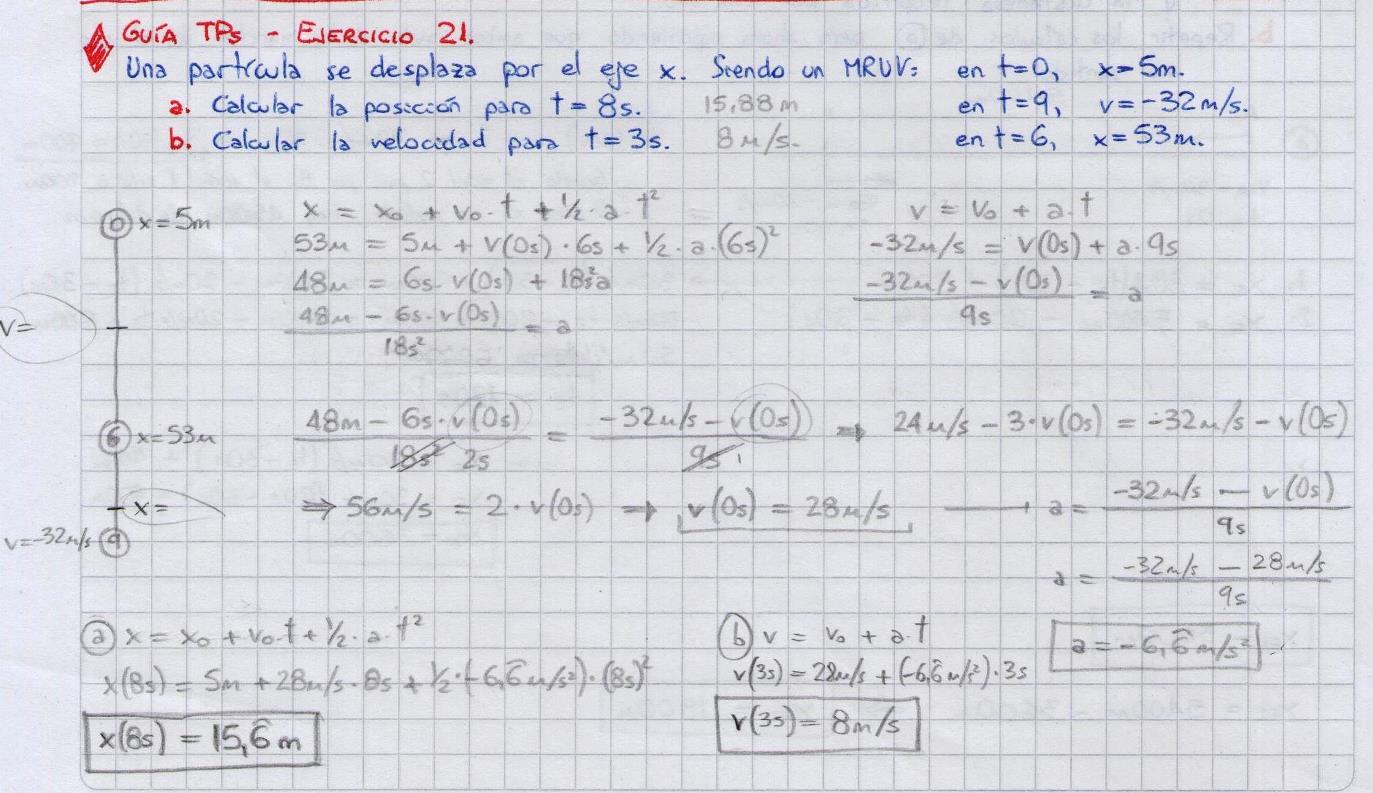 GUÍA TPs - EJERCICIO 21.
Una partícula se desplaza por el eje x. Siendo un MRUV: en t=0, x=5m.
a. Calcular la posición para t = 8s. 15,88 m en t=9, v=-32m/s.
b. Calcular la velocidad para t=3s. 8 m/s. en t=6, x=53m.
0 x=5m
x = x₀ + v₀.t + ½.a.t²
53m = 5m + v(0s).6s + ½.a.(6s)²
48m = 6s.v(0s) + 18s²a
(48m - 6s.v(0s))/18s² = a
v = v₀ + a.t
-32m/s = v(0s) + a.9s
(-32m/s - v(0s))/9s = a
v=
6 x=53m
(48m - 6s.v(0s))/18s² 2s = (-32m/s - v(0s))/9s 1 ⇒ 24m/s - 3.v(0s) = -32m/s - v(0s)
x=
⇒ 56m/s = 2.v(0s) ⇒ v(0s) = 28m/s → a = (-32m/s - v(0s))/9s
v=-32m/s 9
a = (-32m/s - 28m/s)/9s
a = -6,6̂ m/s²
a x = x₀ + v₀.t + ½.a.t²
x(8s) = 5m + 28m/s.8s + ½.(-6,6̂ m/s²).(8s)²
x(8s) = 15,6̂ m
b v = v₀ + a.t
v(3s) = 28m/s + (-6,6̂ m/s²).3s
v(3s) = 8m/s